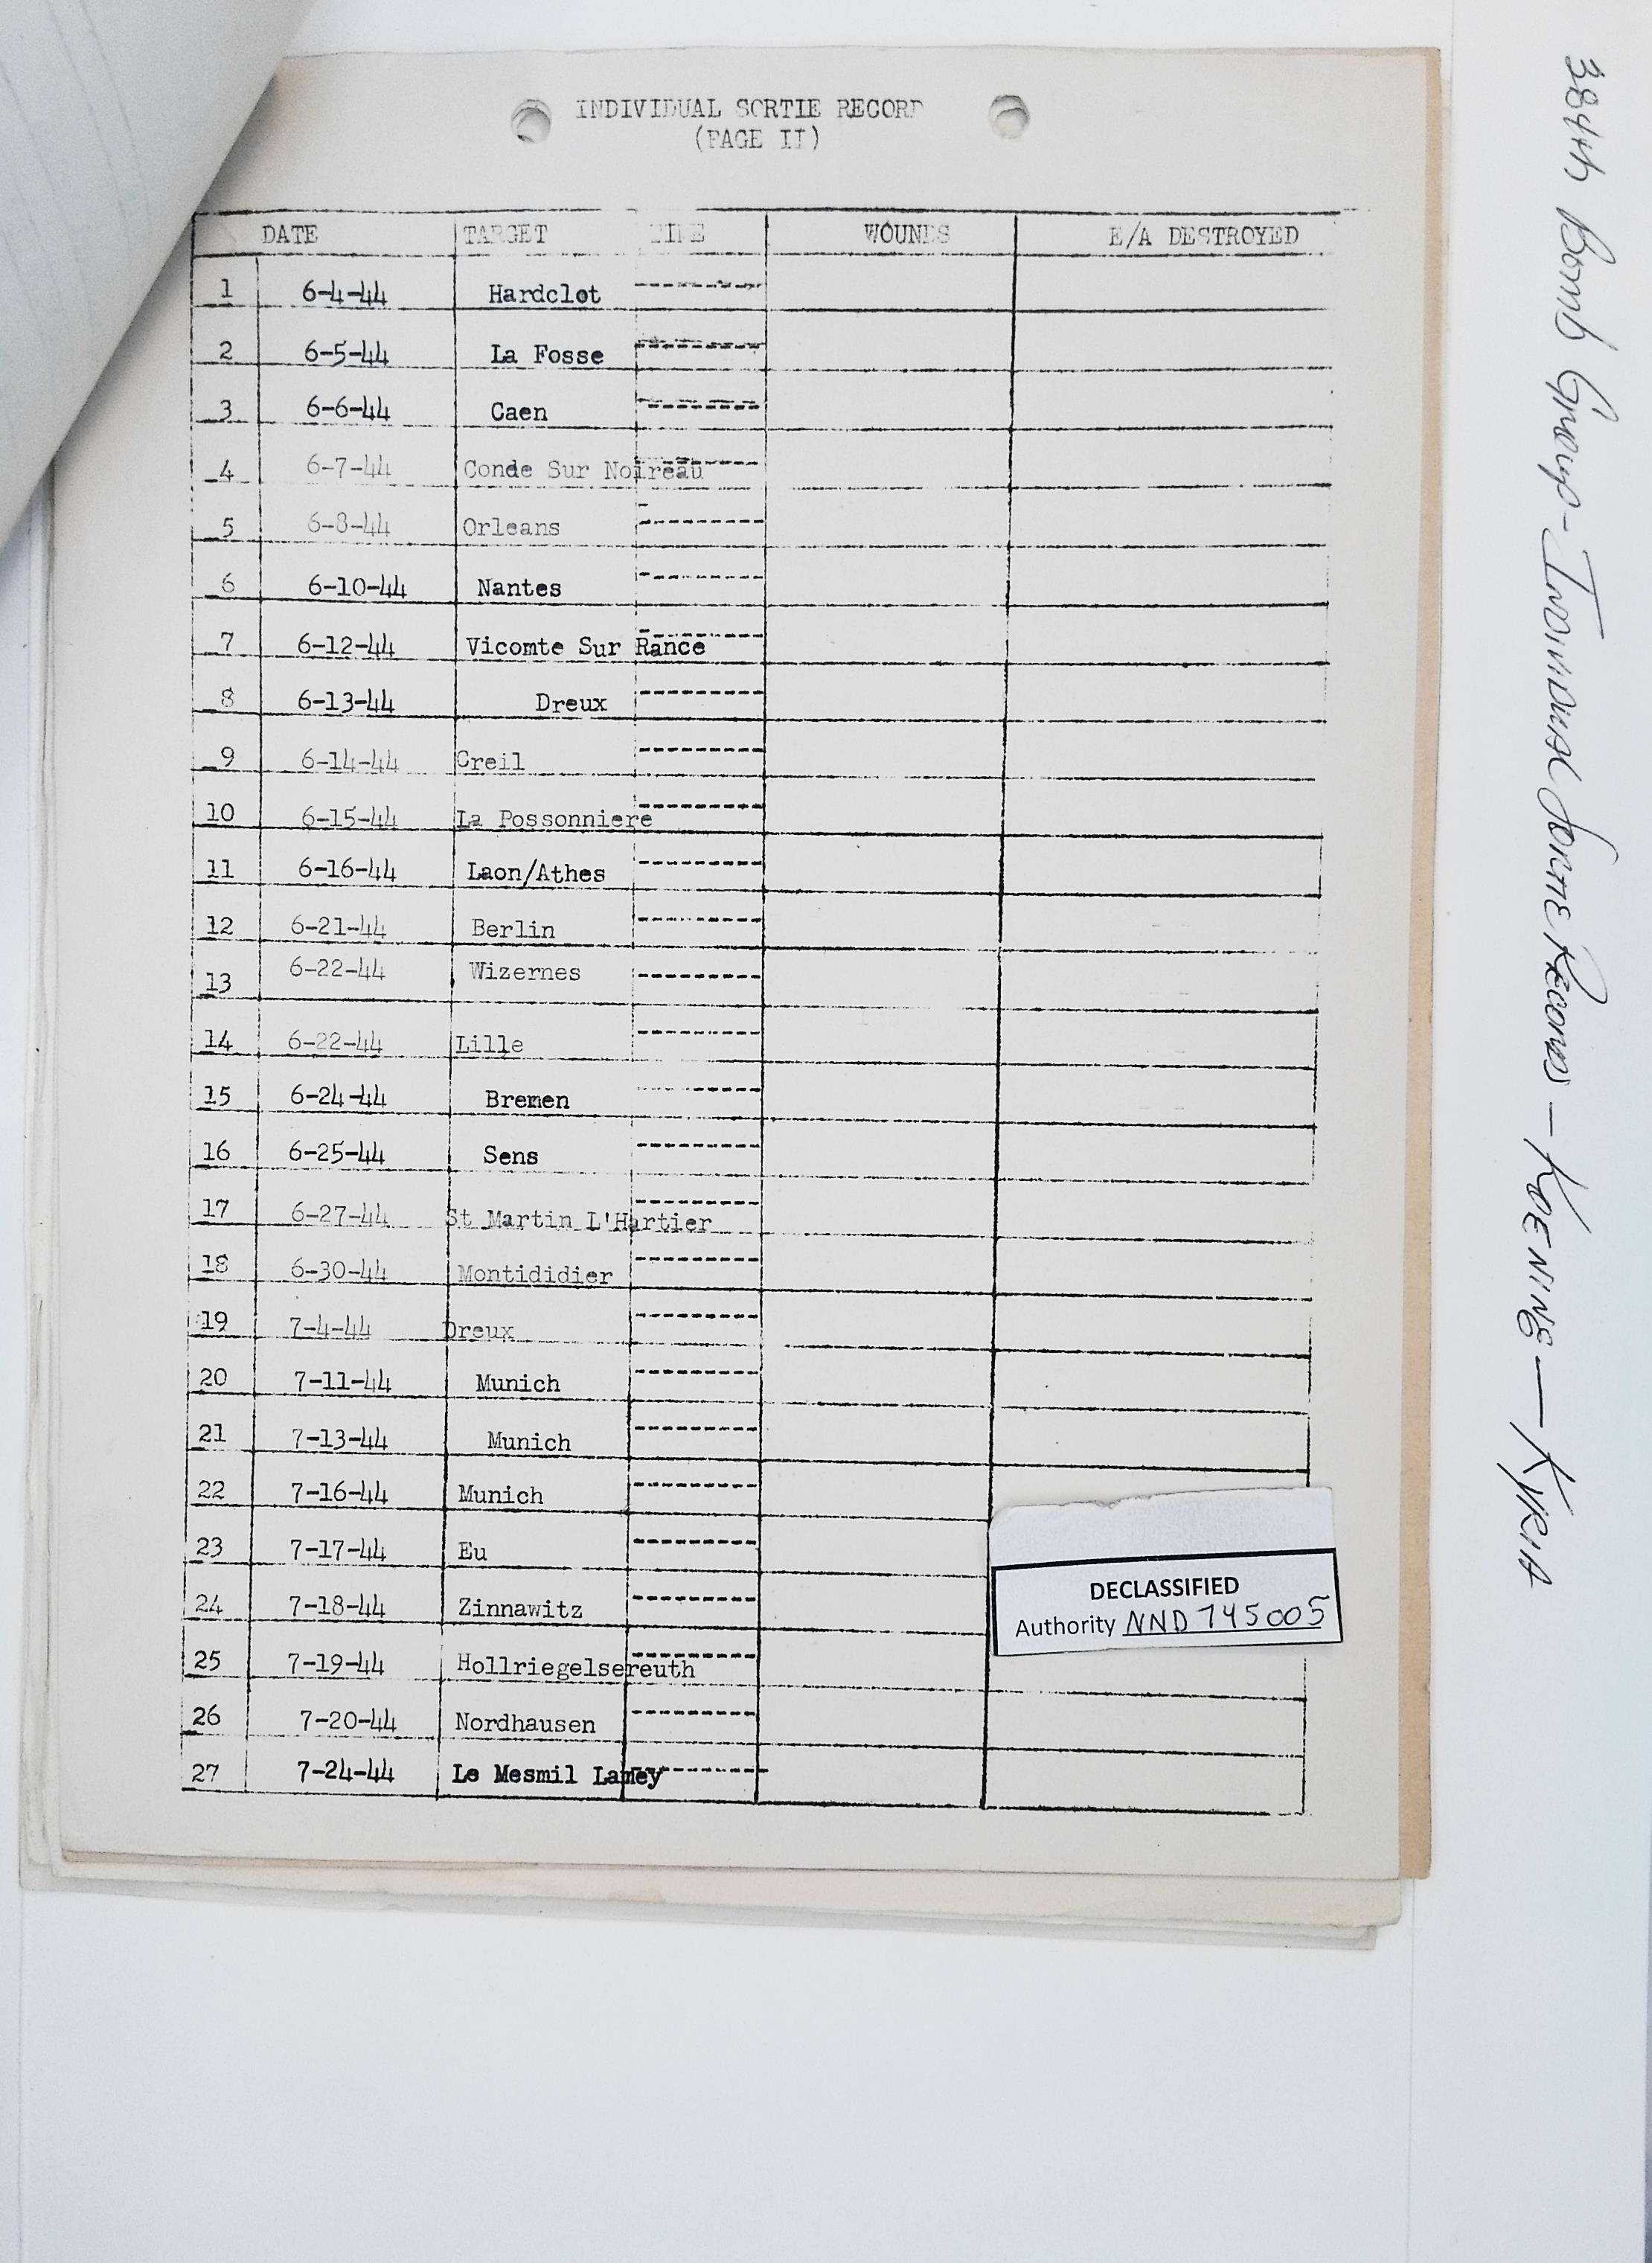 INDIVIDUAL SORTIE RECORD
(PAGE II)
DATE TARGET TIME WOUNDS E/A DESTROYED
1 6-4-44 Hardclot ---------
2 6-5-44 La Fosse ---------
3 6-6-44 Caen ---------
4 6-7-44 Conde Sur Noireau ---------
5 6-8-44 Orleans ---------
6 6-10-44 Nantes ---------
7 6-12-44 Vicomte Sur Rance ---------
8 6-13-44 Dreux ---------
9 6-14-44 Creil ---------
10 6-15-44 La Possonniere ---------
11 6-16-44 Laon/Athes ---------
12 6-21-44 Berlin ---------
13 6-22-44 Wizernes ---------
14 6-22-44 Lille ---------
15 6-24-44 Bremen ---------
16 6-25-44 Sens ---------
17 6-27-44 St Martin L'Hartier ---------
18 6-30-44 Montididier ---------
19 7-4-44 Dreux ---------
20 7-11-44 Munich ---------
21 7-13-44 Munich ---------
22 7-16-44 Munich ---------
23 7-17-44 Eu ---------
24 7-18-44 Zinnawitz ---------
25 7-19-44 Hollriegelsereuth ---------
26 7-20-44 Nordhausen ---------
27 7-24-44 Le Mesmil Lamey ---------
DECLASSIFIED
Authority NND 745005
384th Bomb Group - Individual Sortie Records - KOENING - KYRIA